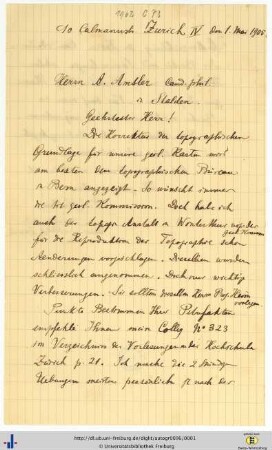 1908 673
Zürich IV. den 1. Mai 1908.
Herrn A. Ambler cand. phil.
Stalden.
Geehrtester Herr!
Die Korrektur der topographischen
Grundlage für unsere geol. Karten wird
am besten dem topographischen Bureau
in Bern angezeigt. So wünscht immer
die geol. Kommission. Doch habe ich
auch der topogr. Anstalt in Winterthur
für die Reproduktion der Topographie schon
Aenderungen vorgeschlagen. Dieselben wurden
schliesslich angenommen. wichtig
Verbesserungen. Sie sollten dieselben Herrn Prof. Heim
vorlegen
Punkto Bestimmen Ihrer Petrefakten
empfehle Ihnen mein Colleg No 323
im Verzeichnis der Vorlesungen der Hochschule
Zürich p. 21. Ich mache die 2 stündige
Uebungen meistens persönlich je nach der
http://dl.ub.uni-freiburg.de/diglit/autogr0696/0001
© Universitätsbibliothek Freiburg